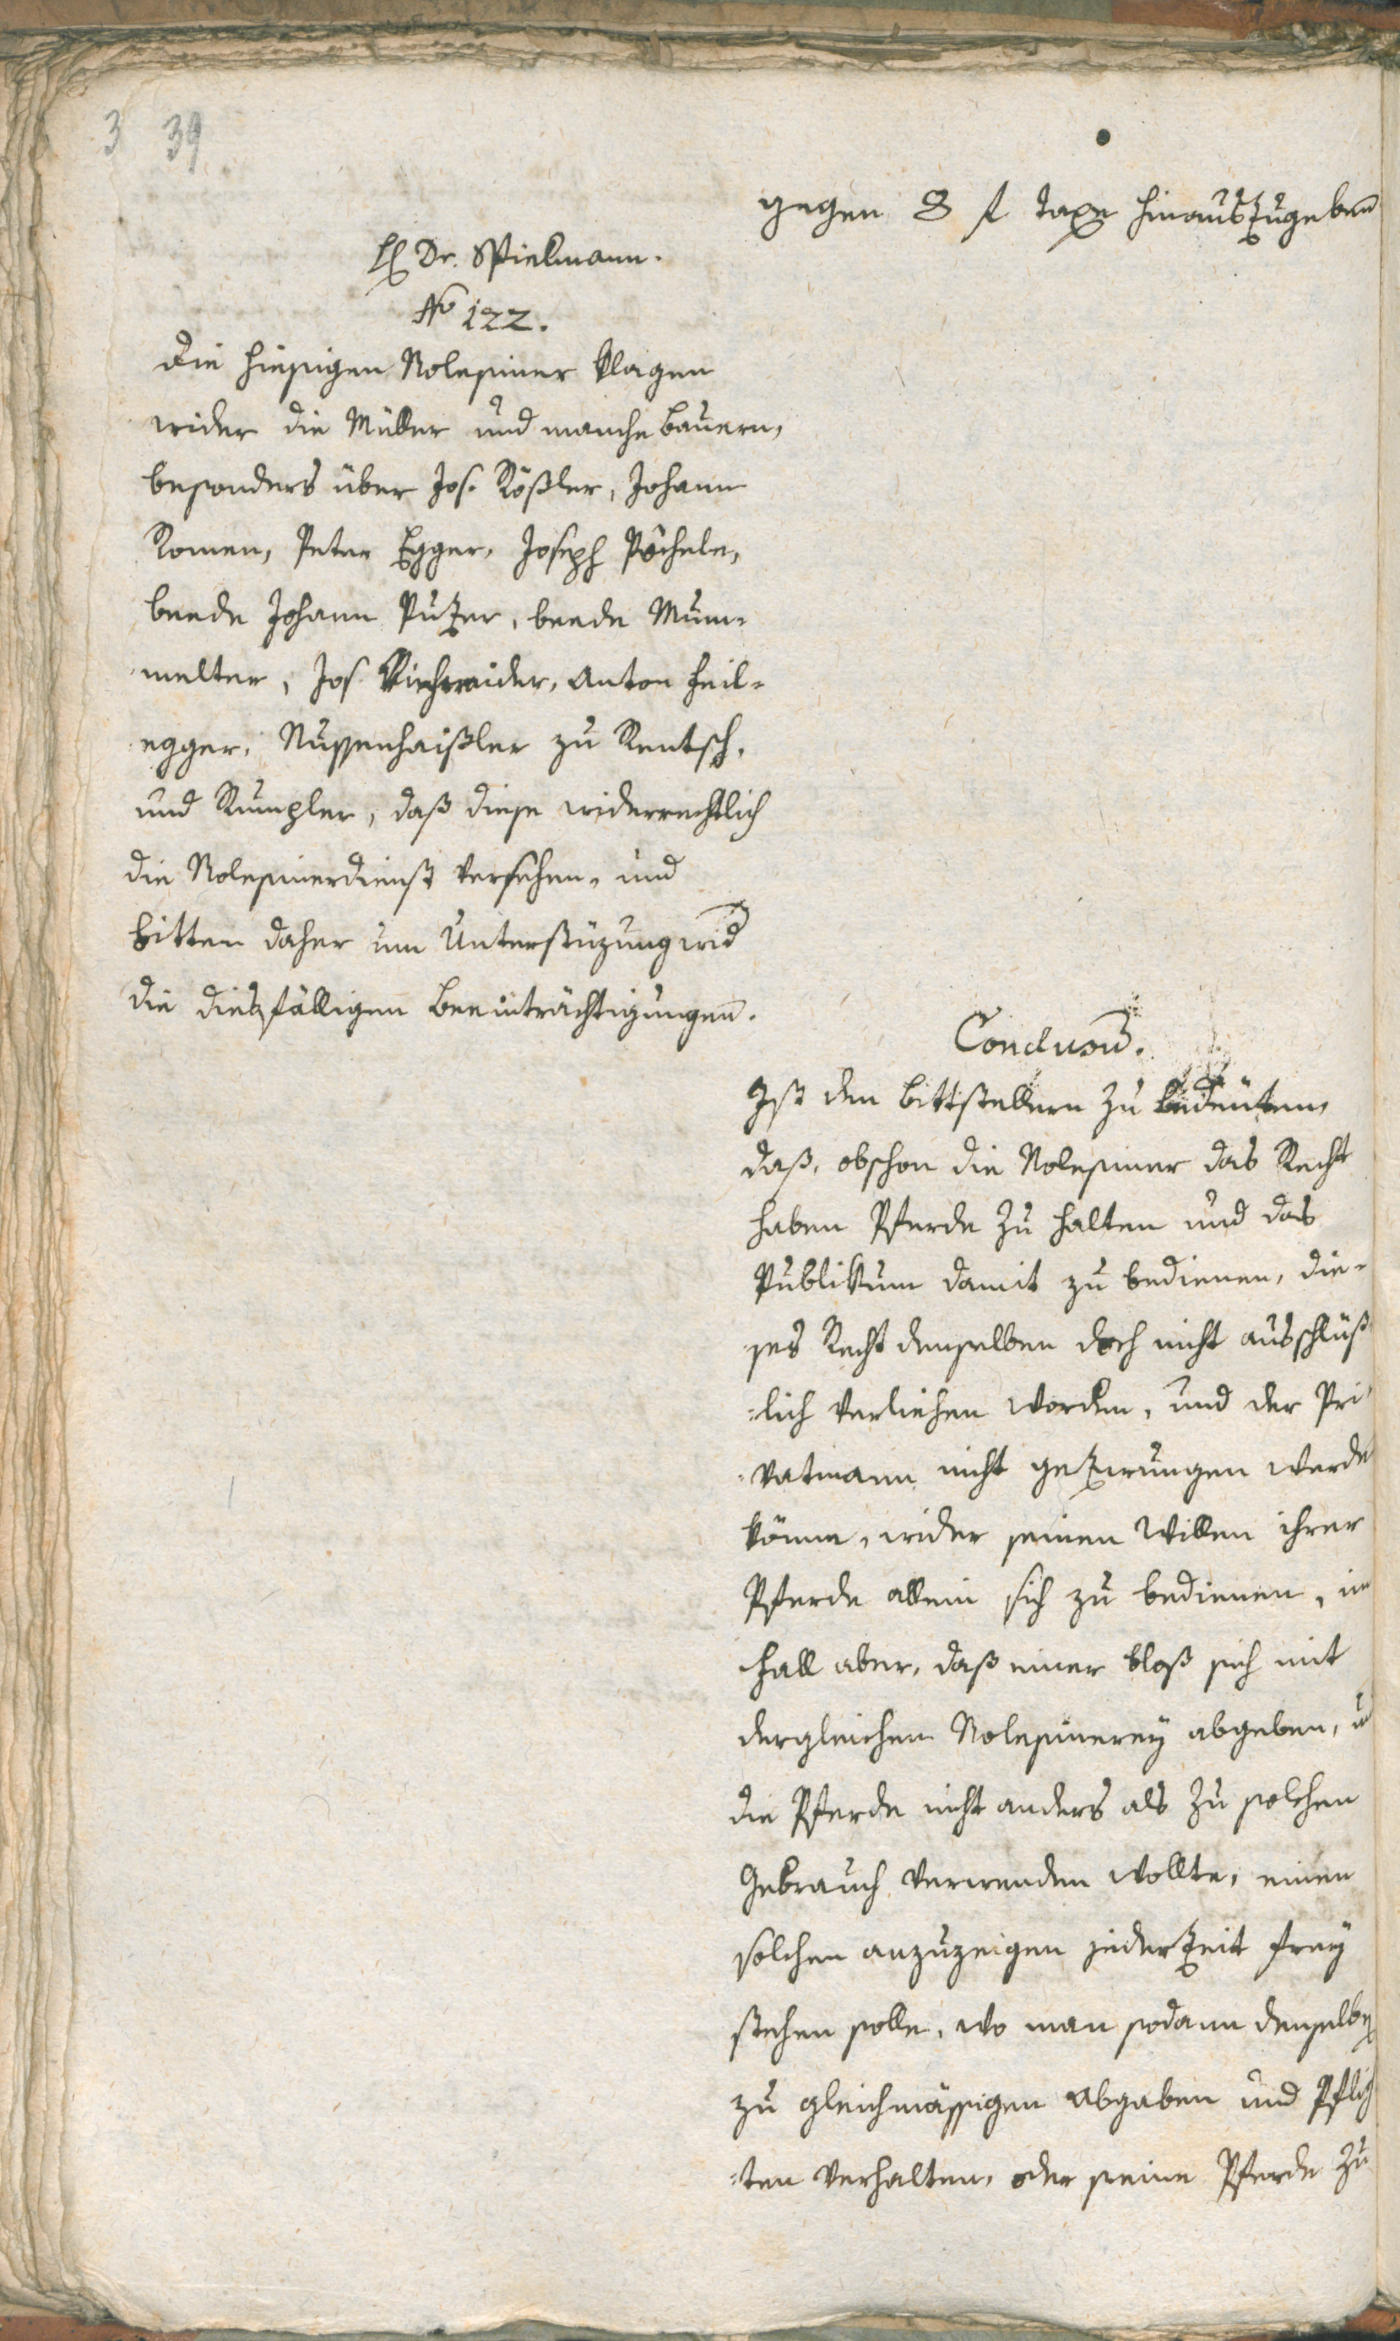 3 39
gegen 8 f Taxe hinauszugeben
H Dr. Spielmann.
No 122.
Die hiesigen Nolesiner klagen
wider die Müller und manche Bauern,
besonders über Jos. Rößler, Johann
Romen, Peter Egger, Joseph Pächele,
beede Johann Puzer, beede Mum-
melter, Jos Viehweider, Anton Feil-
egger, Nussenhaißler zu Rentsch,
und Rumpler, daß diese widerrechtlich
die Nolesinerdienst versehen, und
bitten daher um Unterstüzung wid
die diesfälligen Beeinträchtigungen.
Conclusum.
Ist den Bittstellern zu bedeüten,
daß, obschon die Nolesiner das Recht
haben Pferde zu halten und das
Publikum damit zu bedienen, die-
ses Recht denselben doch nicht ausschlüß
-lich verliehen worden, und der Pri
-vatmann nicht gezwungen werde
könne, wider seinen Willen ihrer
Pferde allein sich zu bedienen, im
Fall aber, daß einer bloß sich mit
dergleichen Nolesinerey abgeben, u
die Pferde nicht anders als zu solchen
Gebrauch verwenden wollte, einen
solchen anzuzeigen jederzeit frey
stehen solle, wo man sodann denselben
zu gleichmässigen Abgaben und Pflich
-ten verhalten, oder seine Pferde zu